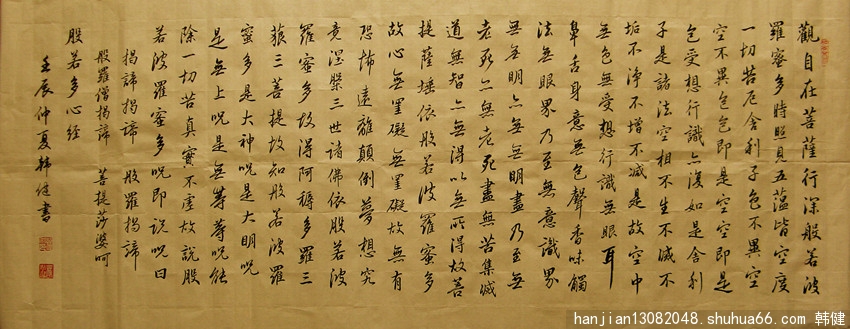 觀自在菩薩行深般若波
羅蜜多時照見五蘊皆空度
一切苦厄舍利子色不異空
空不異色色即是空空即是
色受想行識亦復如是舍利
子是諸法空相不生不滅不
垢不淨不增不減是故空中
無色無受想行識無眼耳
鼻舌身意無色聲香味觸
法無眼界乃至無意識界
無無明亦無無明盡乃至無
老死亦無老死盡無苦集滅
道無智亦無得以無所得故菩
提薩埵依般若波羅蜜多
故心無罣礙無罣礙故無有
恐怖遠離顛倒夢想究
竟涅槃三世諸佛依般若波
羅蜜多故得阿耨多羅三
藐三菩提故知般若波羅
蜜多是大神咒是大明咒
是無上咒是無等等咒能
除一切苦真實不虛故說般
若波羅蜜多咒即說咒曰
揭諦揭諦 般羅揭諦
般羅僧揭諦 菩提莎婆呵
般若多心經
壬辰仲夏韓健書
hanjian13082048.shuhua66.com 韩健